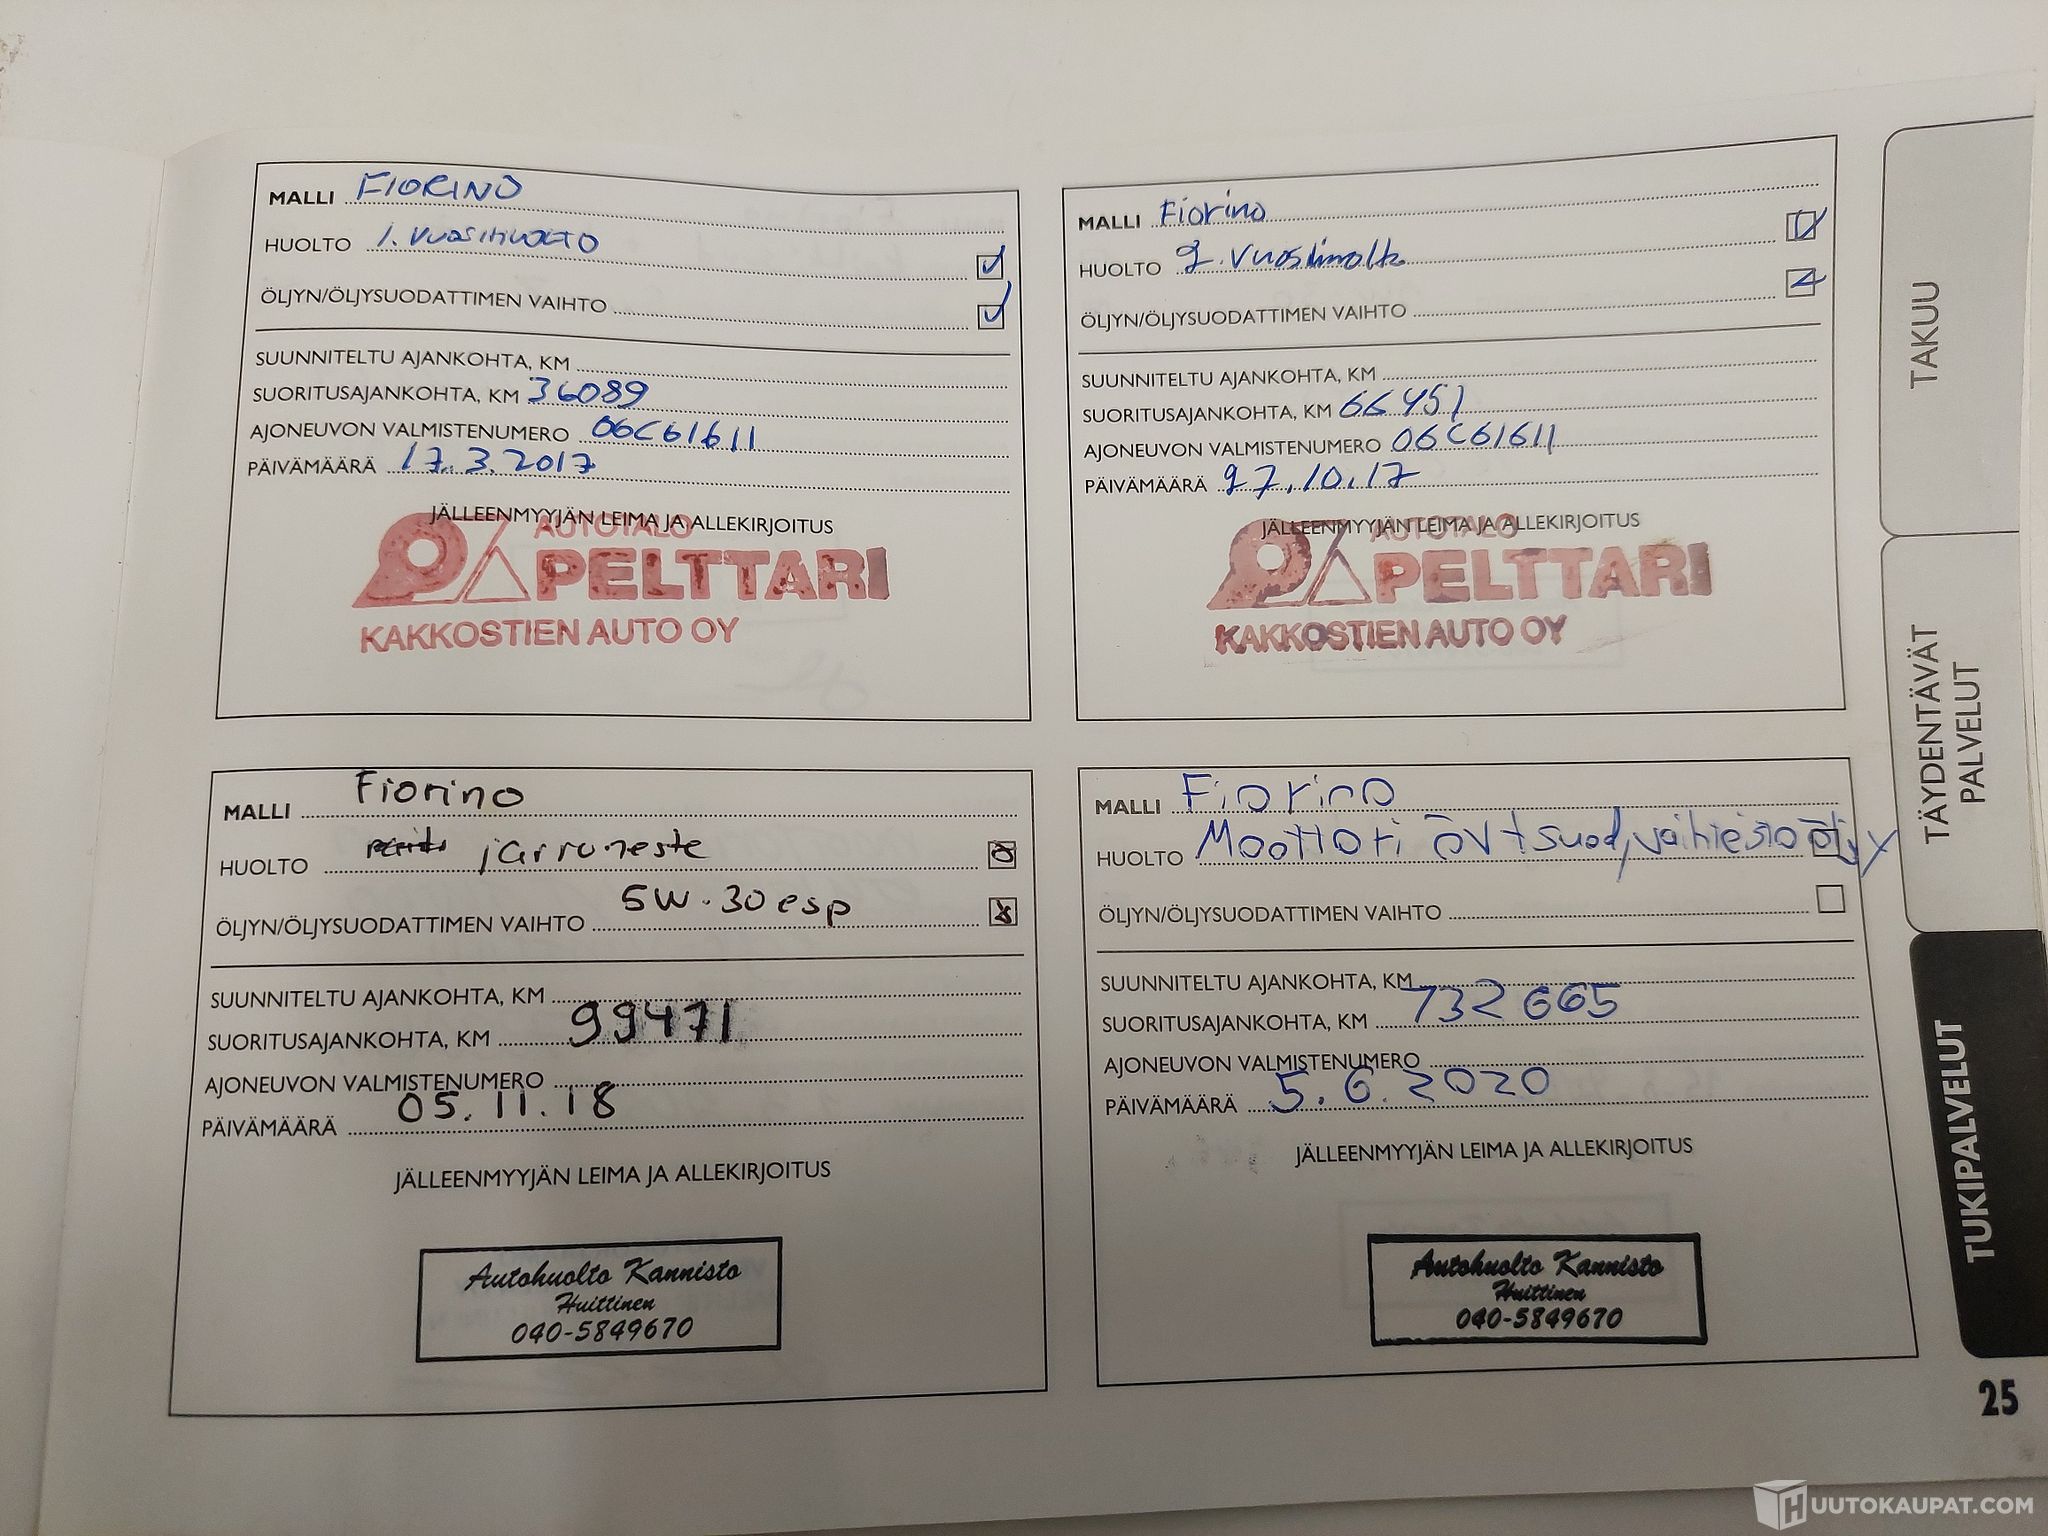 MALLI FIORINO
HUOLTO 1. VUOSIHUOLTO
ÖLJYN/ÖLJYSUODATTIMEN VAIHTO
SUUNNITELTU AJANKOHTA, KM
SUORITUSAJANKOHTA, KM 36089
AJONEUVON VALMISTENUMERO 06C61611
PÄIVÄMÄÄRÄ 17.3.2017
JÄLLEENMYYJÄN LEIMA JA ALLEKIRJOITUS
AUTOTALO
PELTTARI
KAKKOSTIEN AUTO OY
MALLI Fiorino
HUOLTO 2. Vuosihuolto
ÖLJYN/ÖLJYSUODATTIMEN VAIHTO
SUUNNITELTU AJANKOHTA, KM
SUORITUSAJANKOHTA, KM 66451
AJONEUVON VALMISTENUMERO 06C61611
PÄIVÄMÄÄRÄ 27.10.17
JÄLLEENMYYJÄN LEIMA JA ALLEKIRJOITUS
AUTOTALO
PELTTARI
KAKKOSTIEN AUTO OY
MALLI Fiorino
HUOLTO jarruneste
ÖLJYN/ÖLJYSUODATTIMEN VAIHTO 5W-30 esp
SUUNNITELTU AJANKOHTA, KM
SUORITUSAJANKOHTA, KM 99471
AJONEUVON VALMISTENUMERO
PÄIVÄMÄÄRÄ 05.11.18
JÄLLEENMYYJÄN LEIMA JA ALLEKIRJOITUS
Autohuolto Kannisto
Huittinen
040-5849670
MALLI Fiorino
HUOLTO Moottori öv+suod, vaihteistoöljy
ÖLJYN/ÖLJYSUODATTIMEN VAIHTO
SUUNNITELTU AJANKOHTA, KM
SUORITUSAJANKOHTA, KM 132665
AJONEUVON VALMISTENUMERO
PÄIVÄMÄÄRÄ 5.6.2020
JÄLLEENMYYJÄN LEIMA JA ALLEKIRJOITUS
Autohuolto Kannisto
Huittinen
040-5849670
TAKUU
TÄYDENTÄVÄT
PALVELUT
TUKIPALVELUT
25
HUUTOKAUPAT.COM